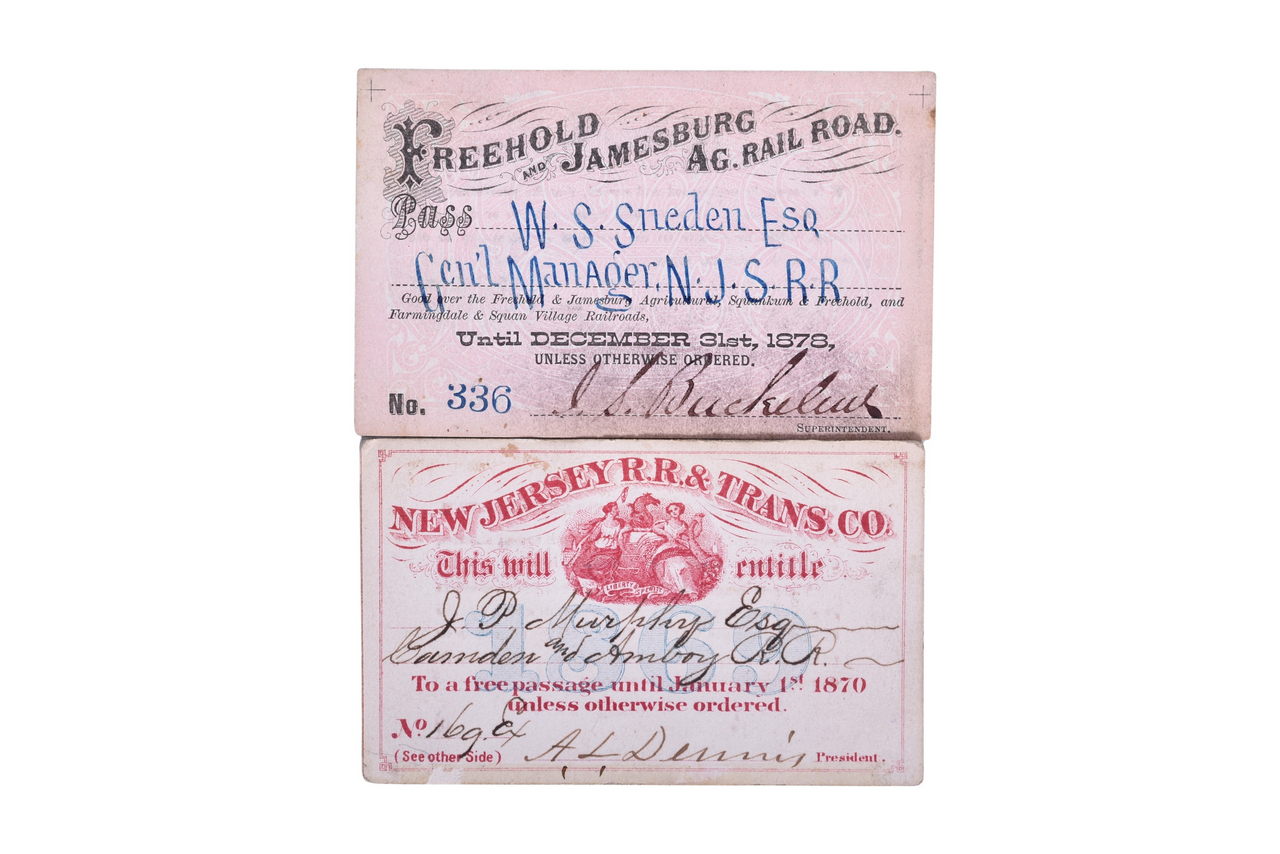 FREEHOLD AND JAMESBURG AG. RAIL ROAD.
Pass W. S. Sneden Esq
Gen'l Manager, N. J. S. R. R
Good over the Freehold & Jamesburg Agricultural, Squankum & Freehold, and
Farmingdale & Squan Village Railroads,
Until DECEMBER 31st, 1878,
UNLESS OTHERWISE ORDERED.
No. 336 I. S. Buckelew
SUPERINTENDENT.
NEW JERSEY R.R. & TRANS. CO.
This will entitle
LIBERTY
J. P. Murphy Esq
Camden and Amboy R. R.
1869
To a free passage until January 1st 1870
unless otherwise ordered.
No. 169 Ex
(See other Side) A L Dennis President.